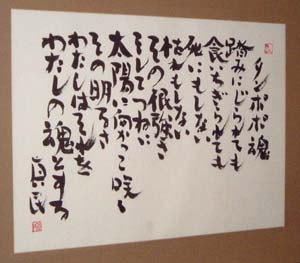 タンポポ魂
踏みにじられても
食いちぎられても
死にもしない
枯れもしない
その根強さ
そしてつねに
太陽に向かって咲く
その明るさ
わたしはそれを
わたしの魂とする
真民